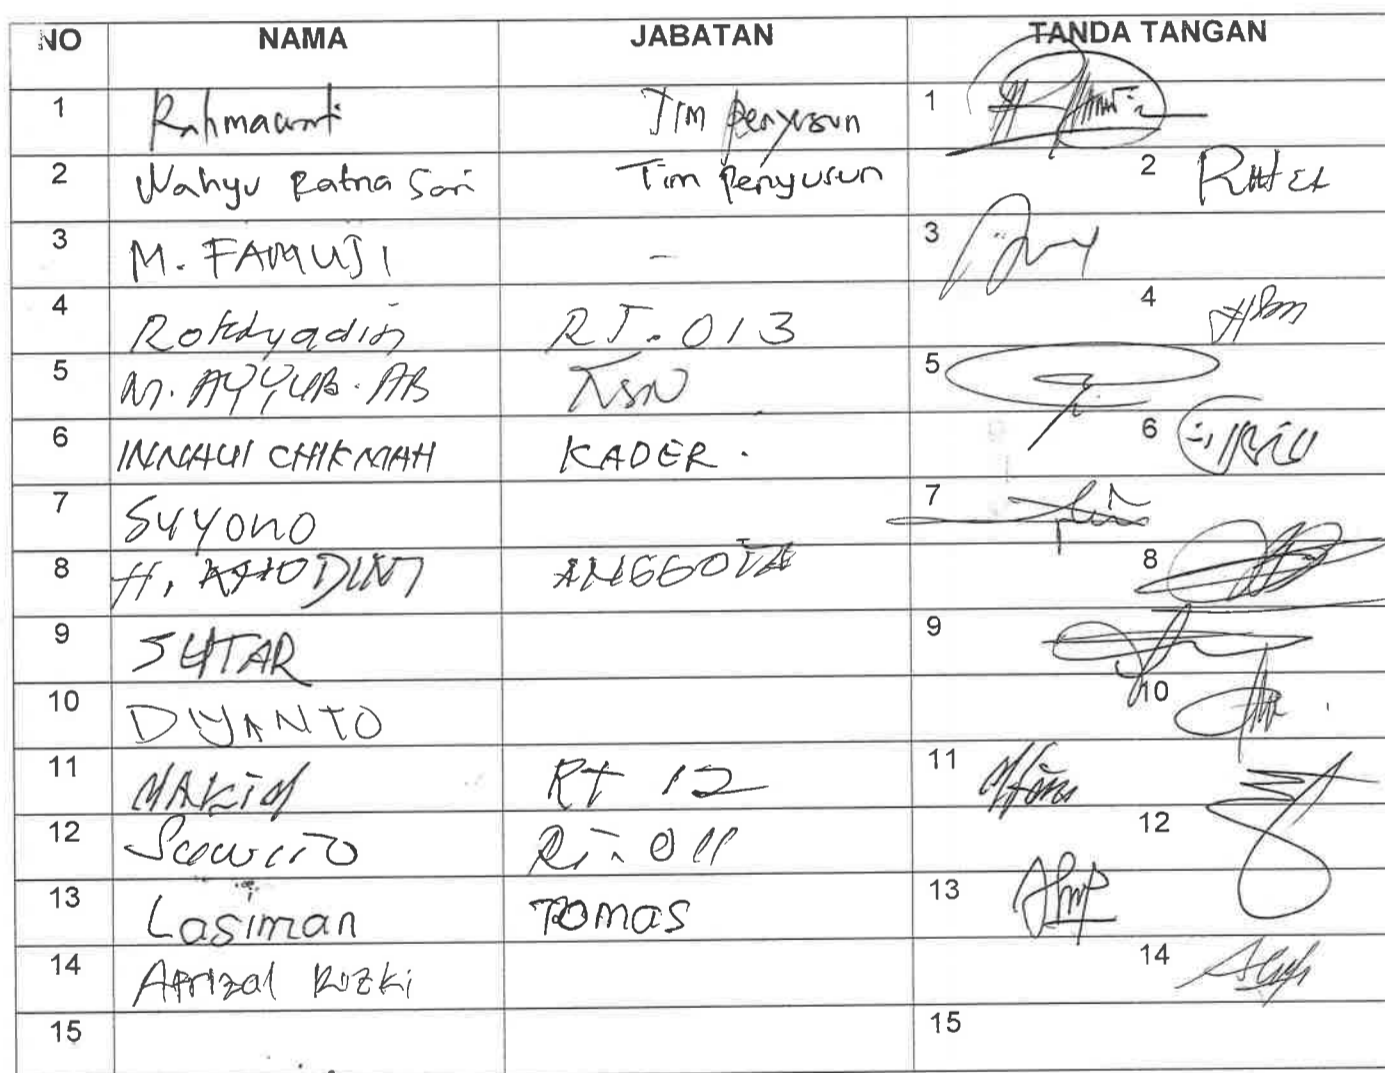 NO NAMA JABATAN TANDA TANGAN
1 Rahmawati Tim Penyusun 1
2 Wahyu Ratna Sari Tim Penyusun 2
3 M. FAMUJI - 3
4 RT. 013 4
5 M. AYYUB. AB 5
6 CHIKMAH KADER. 6
7 Suyono 7
8 H. ANGGOTA 8
9 SUTAR 9
10 DIYANTO 10
11 RT 12 11
12 RT. 011 12
13 Lasiman TOMAS 13
14 Afrizal Rizki 14
15 15